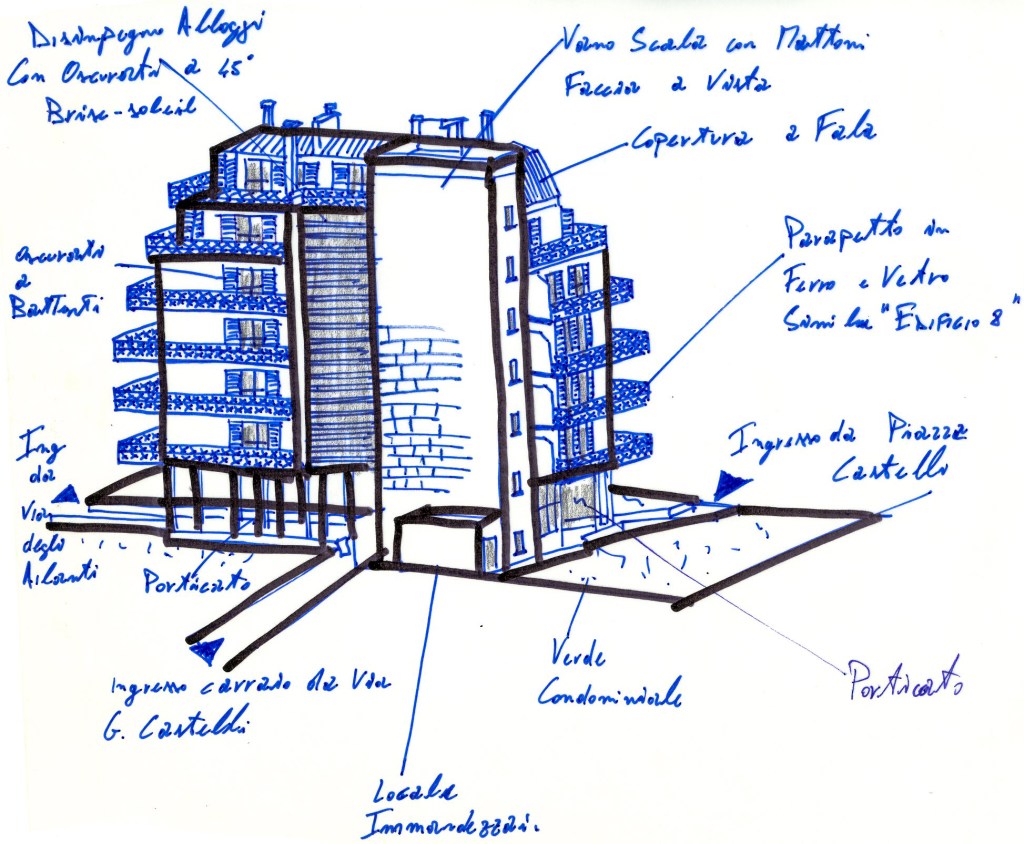 Disimpegno Alloggi
Con Oscuranti a 45°
Brise-soleil
Vano Scala con Mattoni
Faccia a Vista
Copertura a Falda
oscuranti
a
Battenti
Parapetto in
Ferro e Vetro
Simile "EDIFICIO 8"
Ing
da
Via
degli
Ailanti
Ingresso da Piazza
Castello
Porticato
Ingresso carraio da Via
G. Castelli
Verde
Condominiale
Porticato
Locale
Immondezzai.